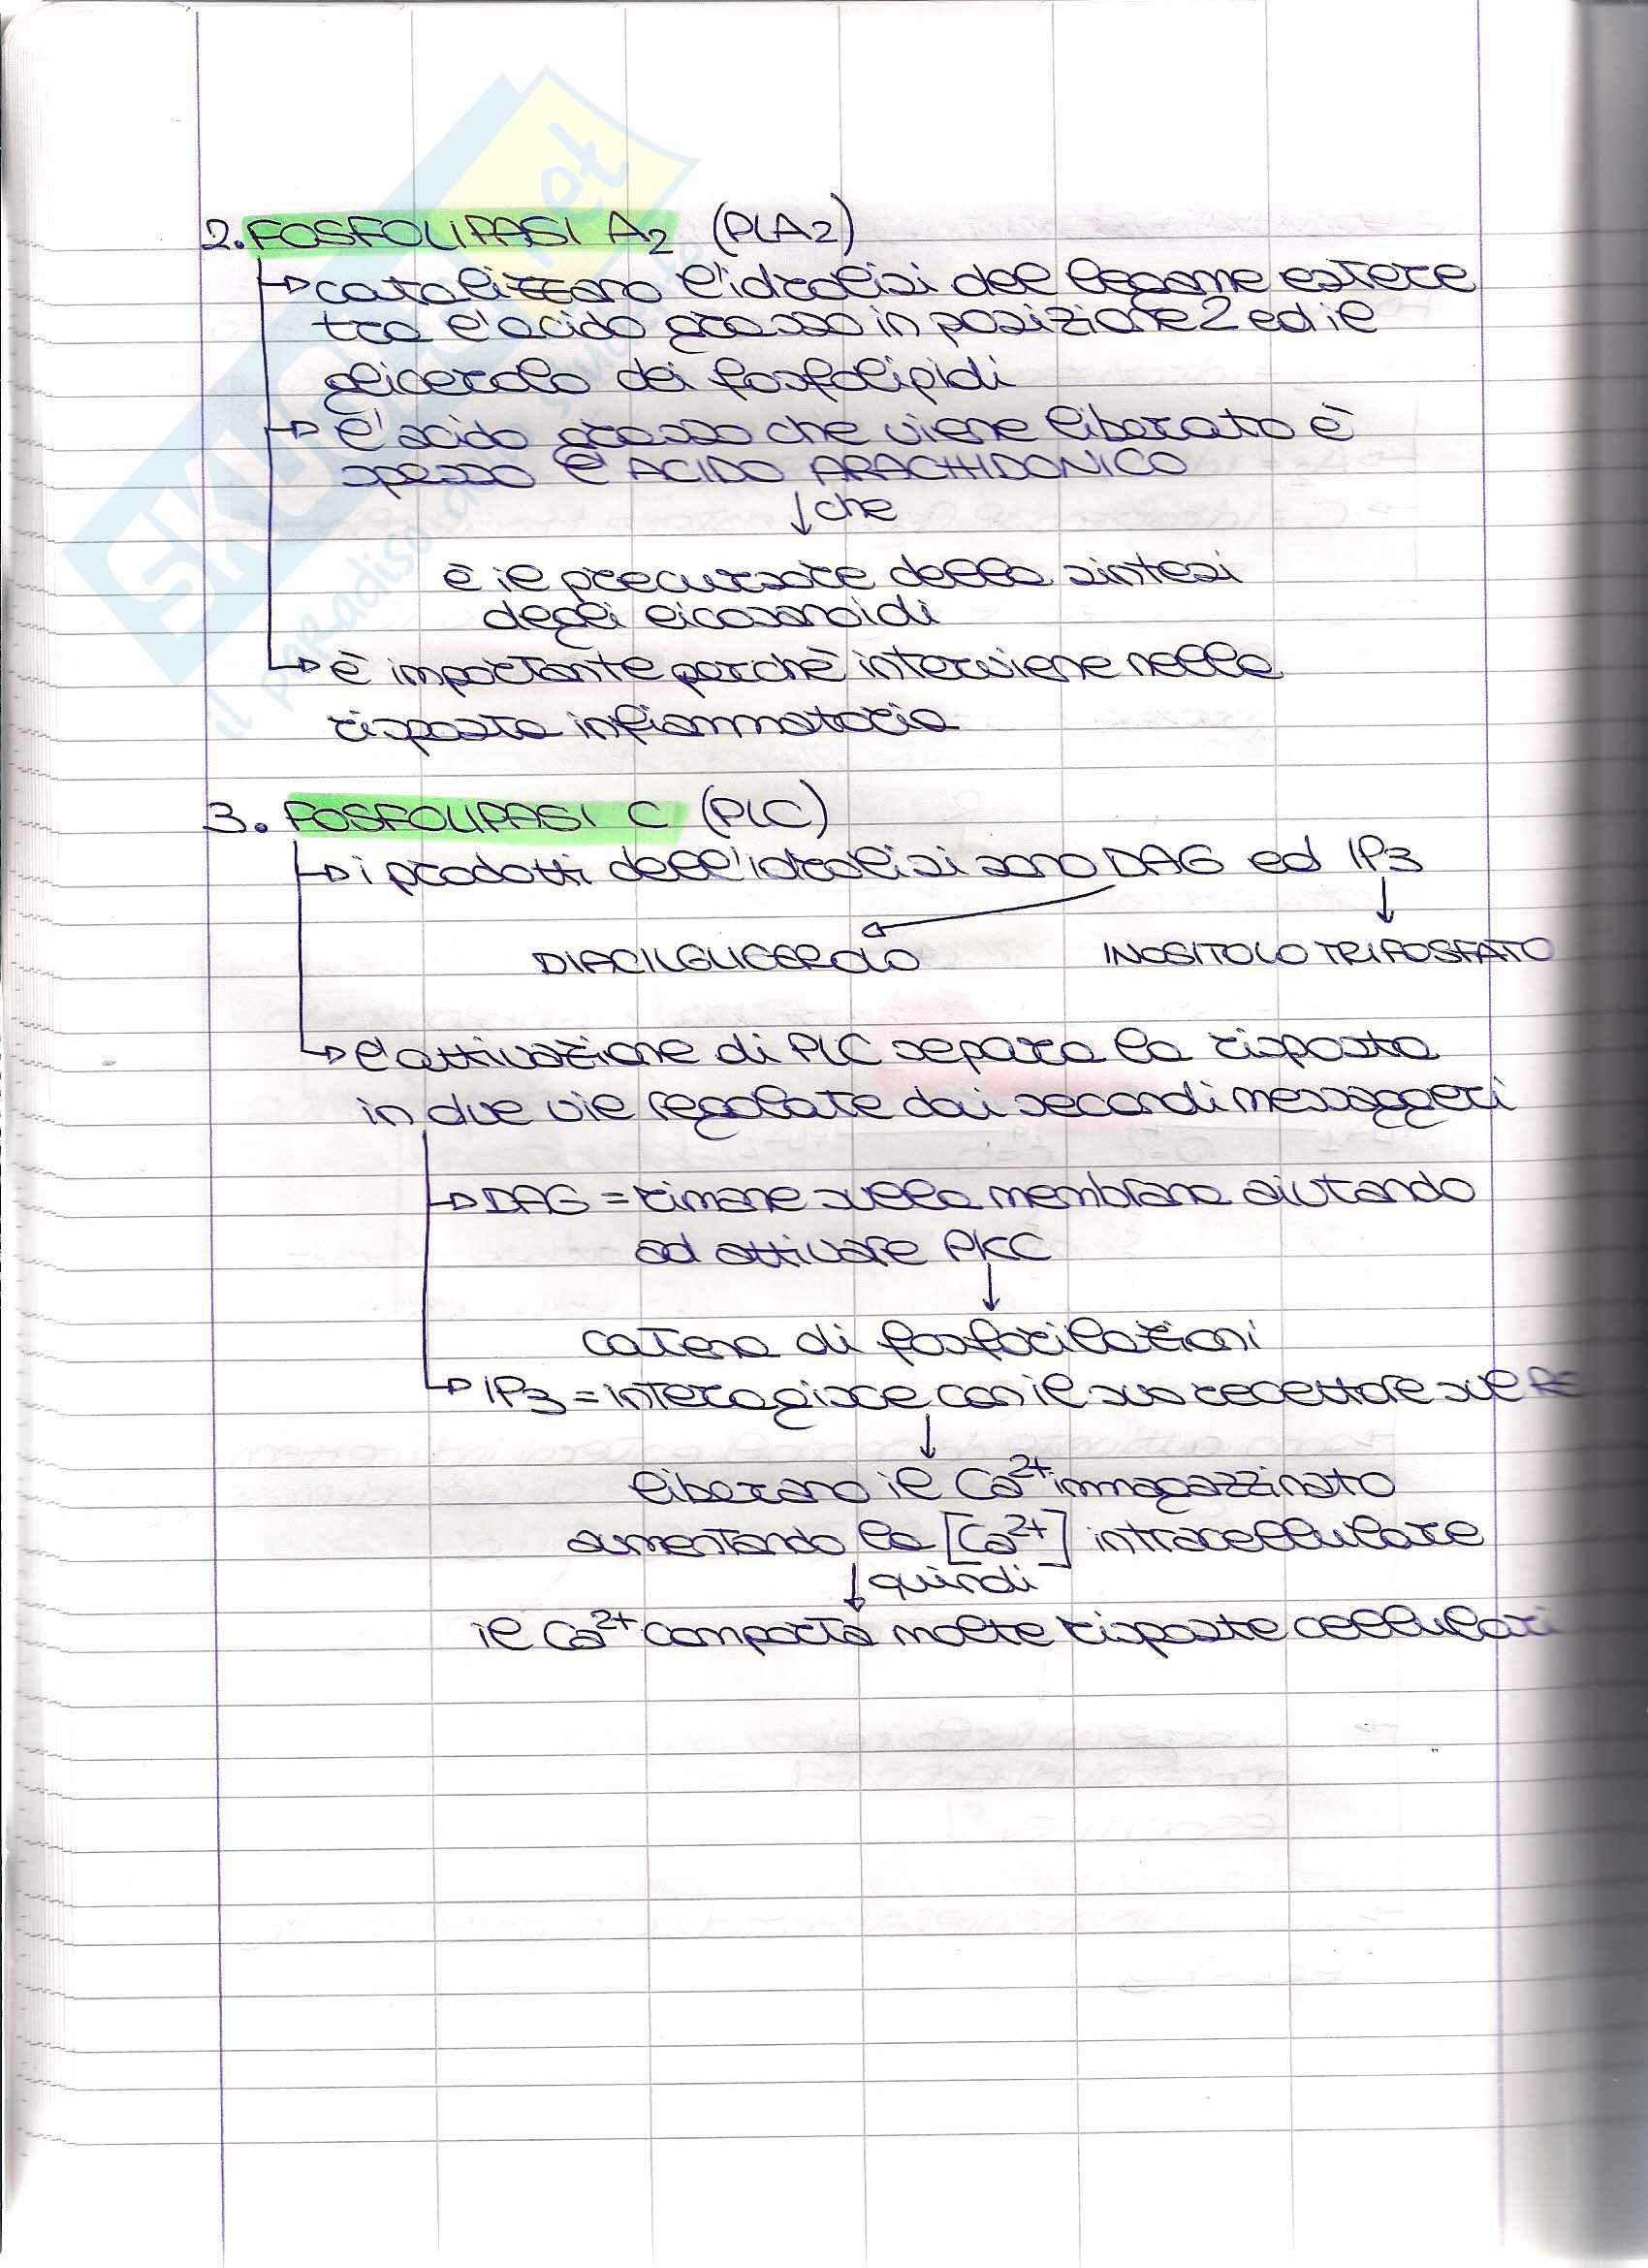 2. FOSFOLIPASI A2 (PLA2)
→ catalizzano l'idrolisi del legame estere
tra l'acido grasso in posizione 2 ed il
glicerolo dei fosfolipidi
→ l'acido grasso che viene liberato è
spesso l'ACIDO ARACHIDONICO
↓ che
è il precursore della sintesi
degli eicosanoidi
→ è importante perchè interviene nella
risposta infiammatoria
3. FOSFOLIPASI C (PLC)
→ i prodotti dell'idrolisi sono DAG ed IP3
DIACILGLICEROLO INOSITOLO TRIFOSFATO
→ l'attivazione di PLC separa la risposta
in due vie regolate dai secondi messaggeri
→ DAG = rimane sulla membrana aiutando
ad attivare PKC
↓
catena di fosforilazioni
→ IP3 = interagisce con il suo recettore sul
↓
liberano il Ca2+ immagazzinato
aumentando la [Ca2+] intracellulare
↓ quindi
il Ca2+ comporta molte risposte cellulari
SKUOLA.net
il paradiso dello studente